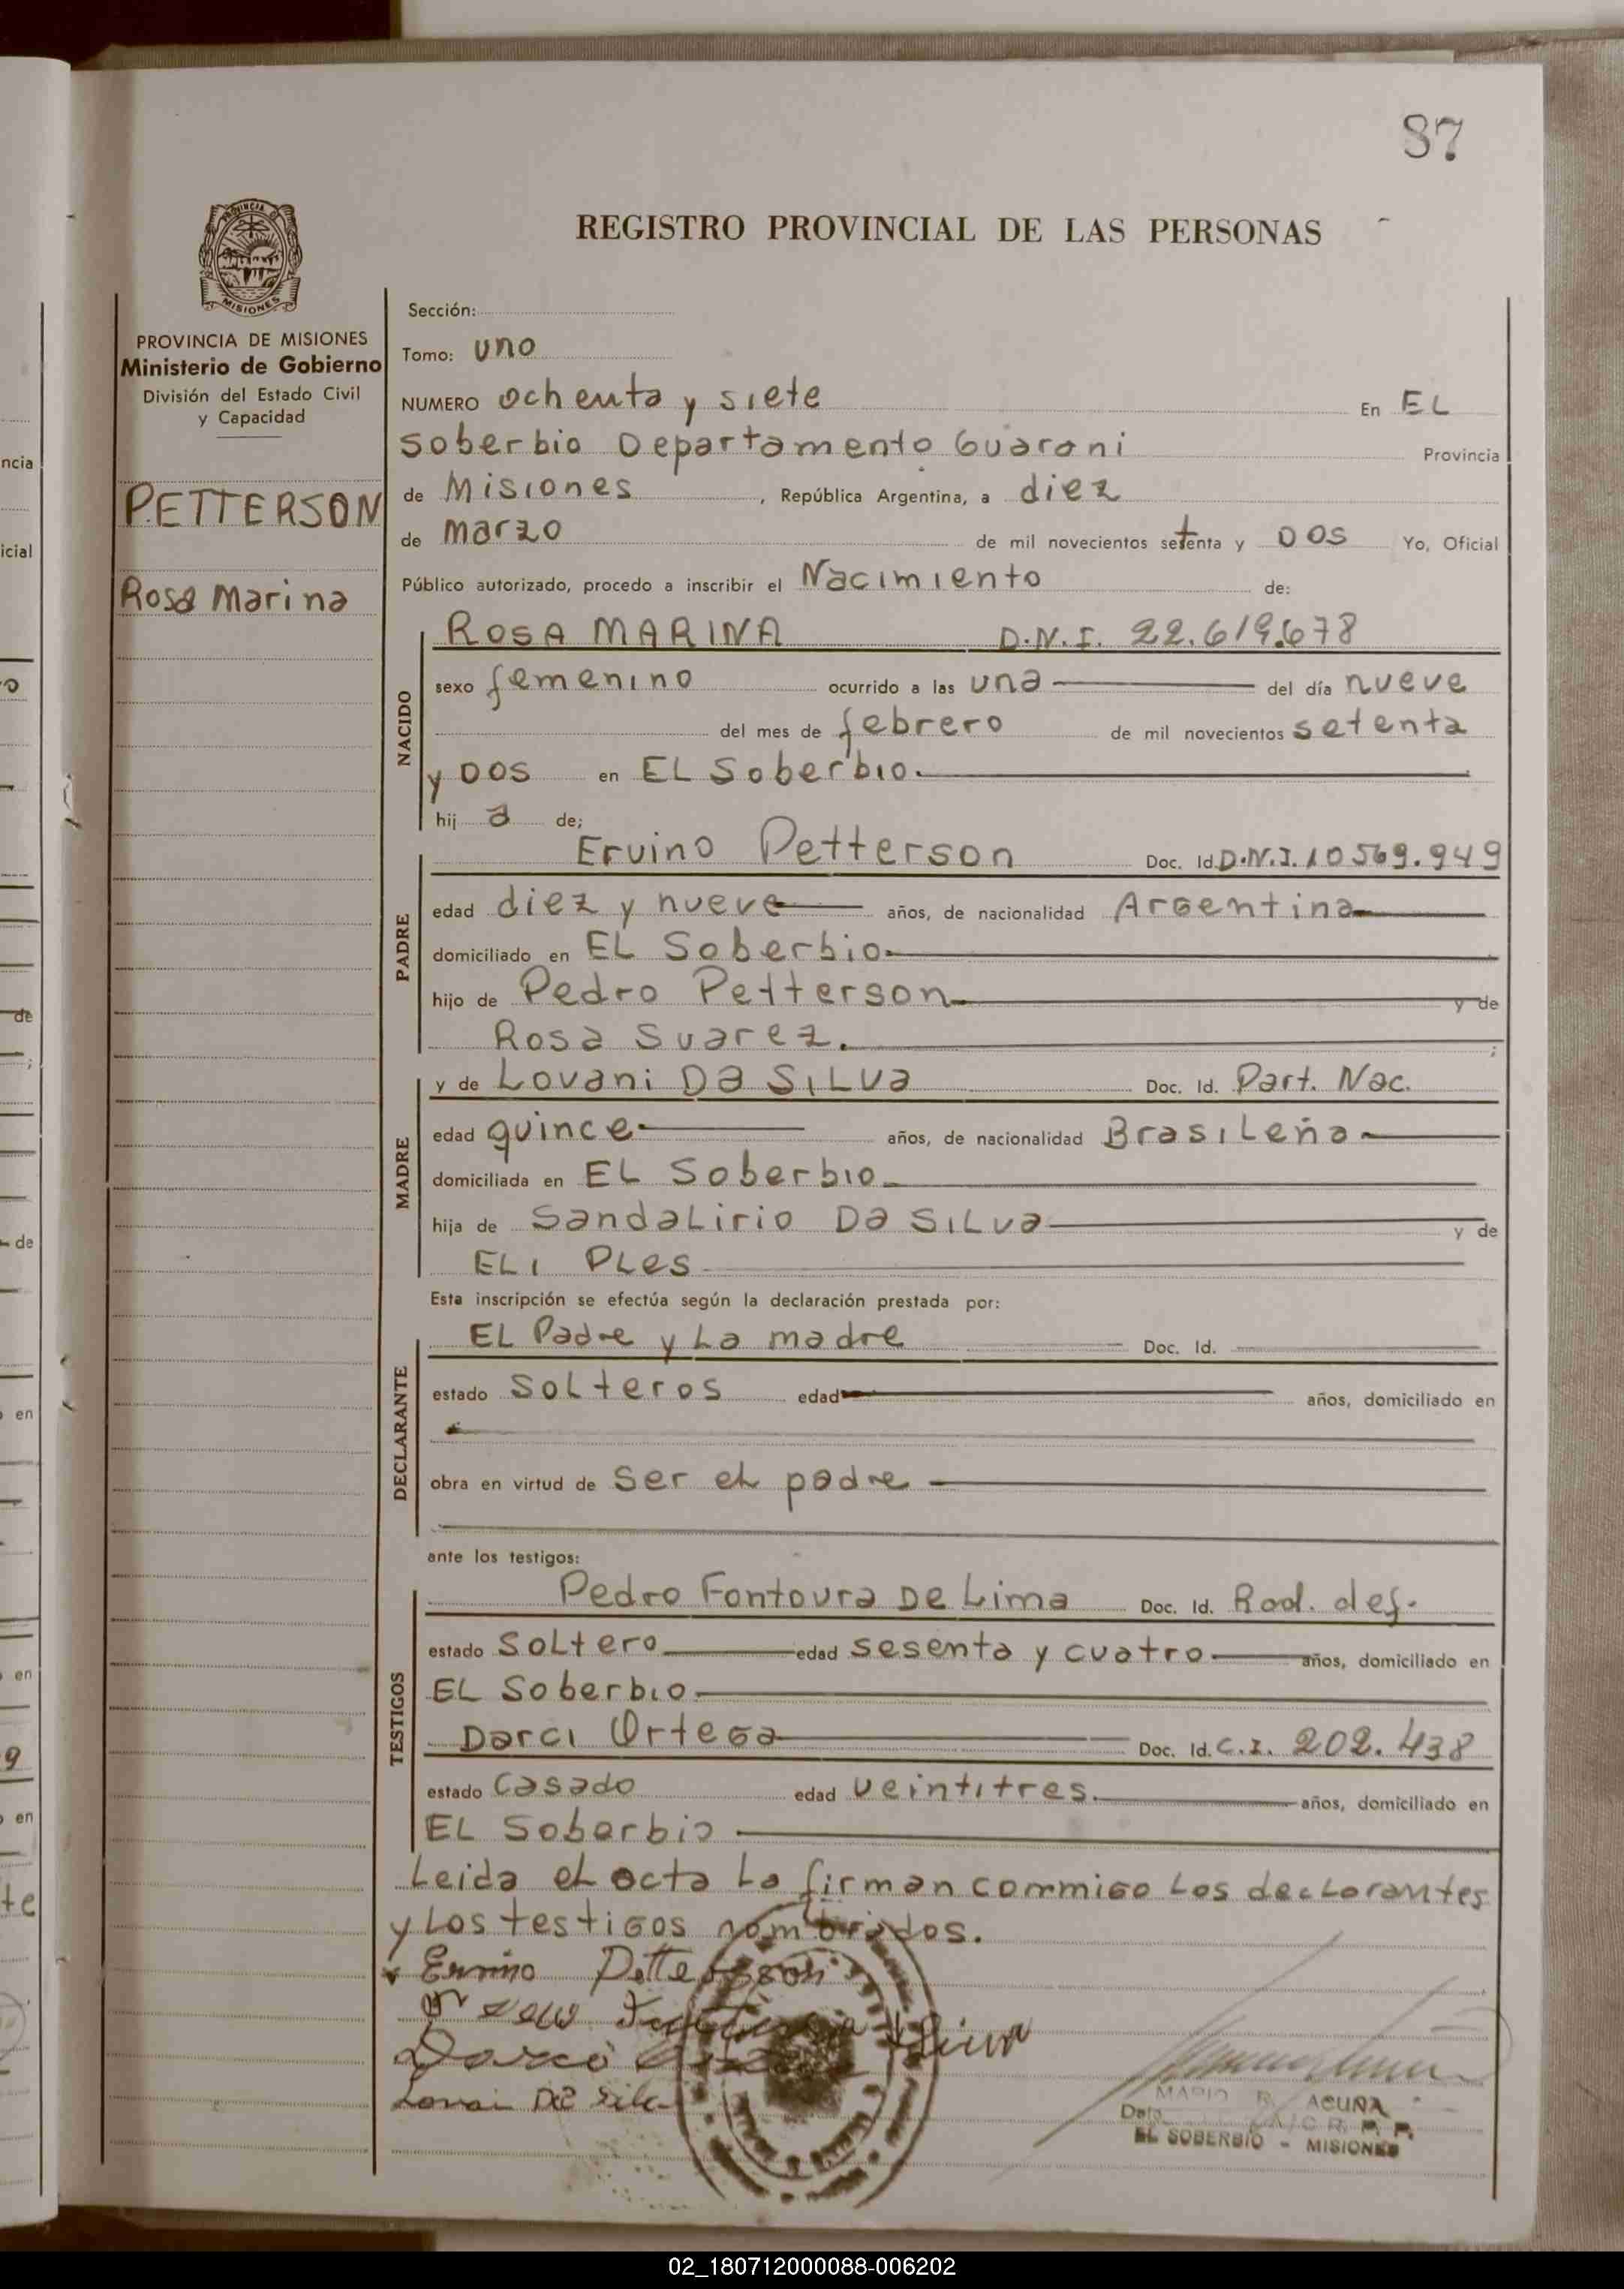 87
REGISTRO PROVINCIAL DE LAS PERSONAS
PROVINCIA DE MISIONES
Ministerio de Gobierno
División del Estado Civil
y Capacidad
PETTERSON
Rosa Marina
Sección:
Tomo: uno
NUMERO ochenta y siete En EL
Soberbio Departamento Guarani Provincia
de Misiones, República Argentina, a diez
de marzo de mil novecientos setenta y DOS Yo, Oficial
Público autorizado, procedo a inscribir el Nacimiento de:
NACIDO
ROSA MARINA D.N.I. 22.619.678
sexo femenino ocurrido a las una del día nueve
del mes de febrero de mil novecientos setenta
y DOS en EL Soberbio.
hij a de;
PADRE
Ervino Petterson Doc. Id. D.N.I. 10569.949
edad diez y nueve años, de nacionalidad Argentina
domiciliado en EL Soberbio
hijo de Pedro Petterson y de
Rosa Suarez. ;
MADRE
y de Lovani DA SILVA Doc. Id. Part. Nac.
edad quince años, de nacionalidad Brasileña
domiciliada en EL Soberbio
hija de Sandalirio DA SILVA y de
ELI PLES
Esta inscripción se efectúa según la declaración prestada por:
DECLARANTE
EL Padre y La madre Doc. Id.
estado Solteros edad años, domiciliado en
obra en virtud de ser el padre
ante los testigos:
TESTIGOS
Pedro Fontoura De Lima Doc. Id. Rad. def.
estado Soltero edad sesenta y cuatro años, domiciliado en
EL Soberbio
Darci Ortega Doc. Id. C.I. 202.438
estado Casado edad veintitres. años, domiciliado en
EL Soberbio
Leida el acta La firman commigo Los declarantes
y Los testigos nombrados.
Ervino Petterson
Lovai Da Silva
ACUÑA
EL SOBERBIO - MISIONES
02_180712000088-006202